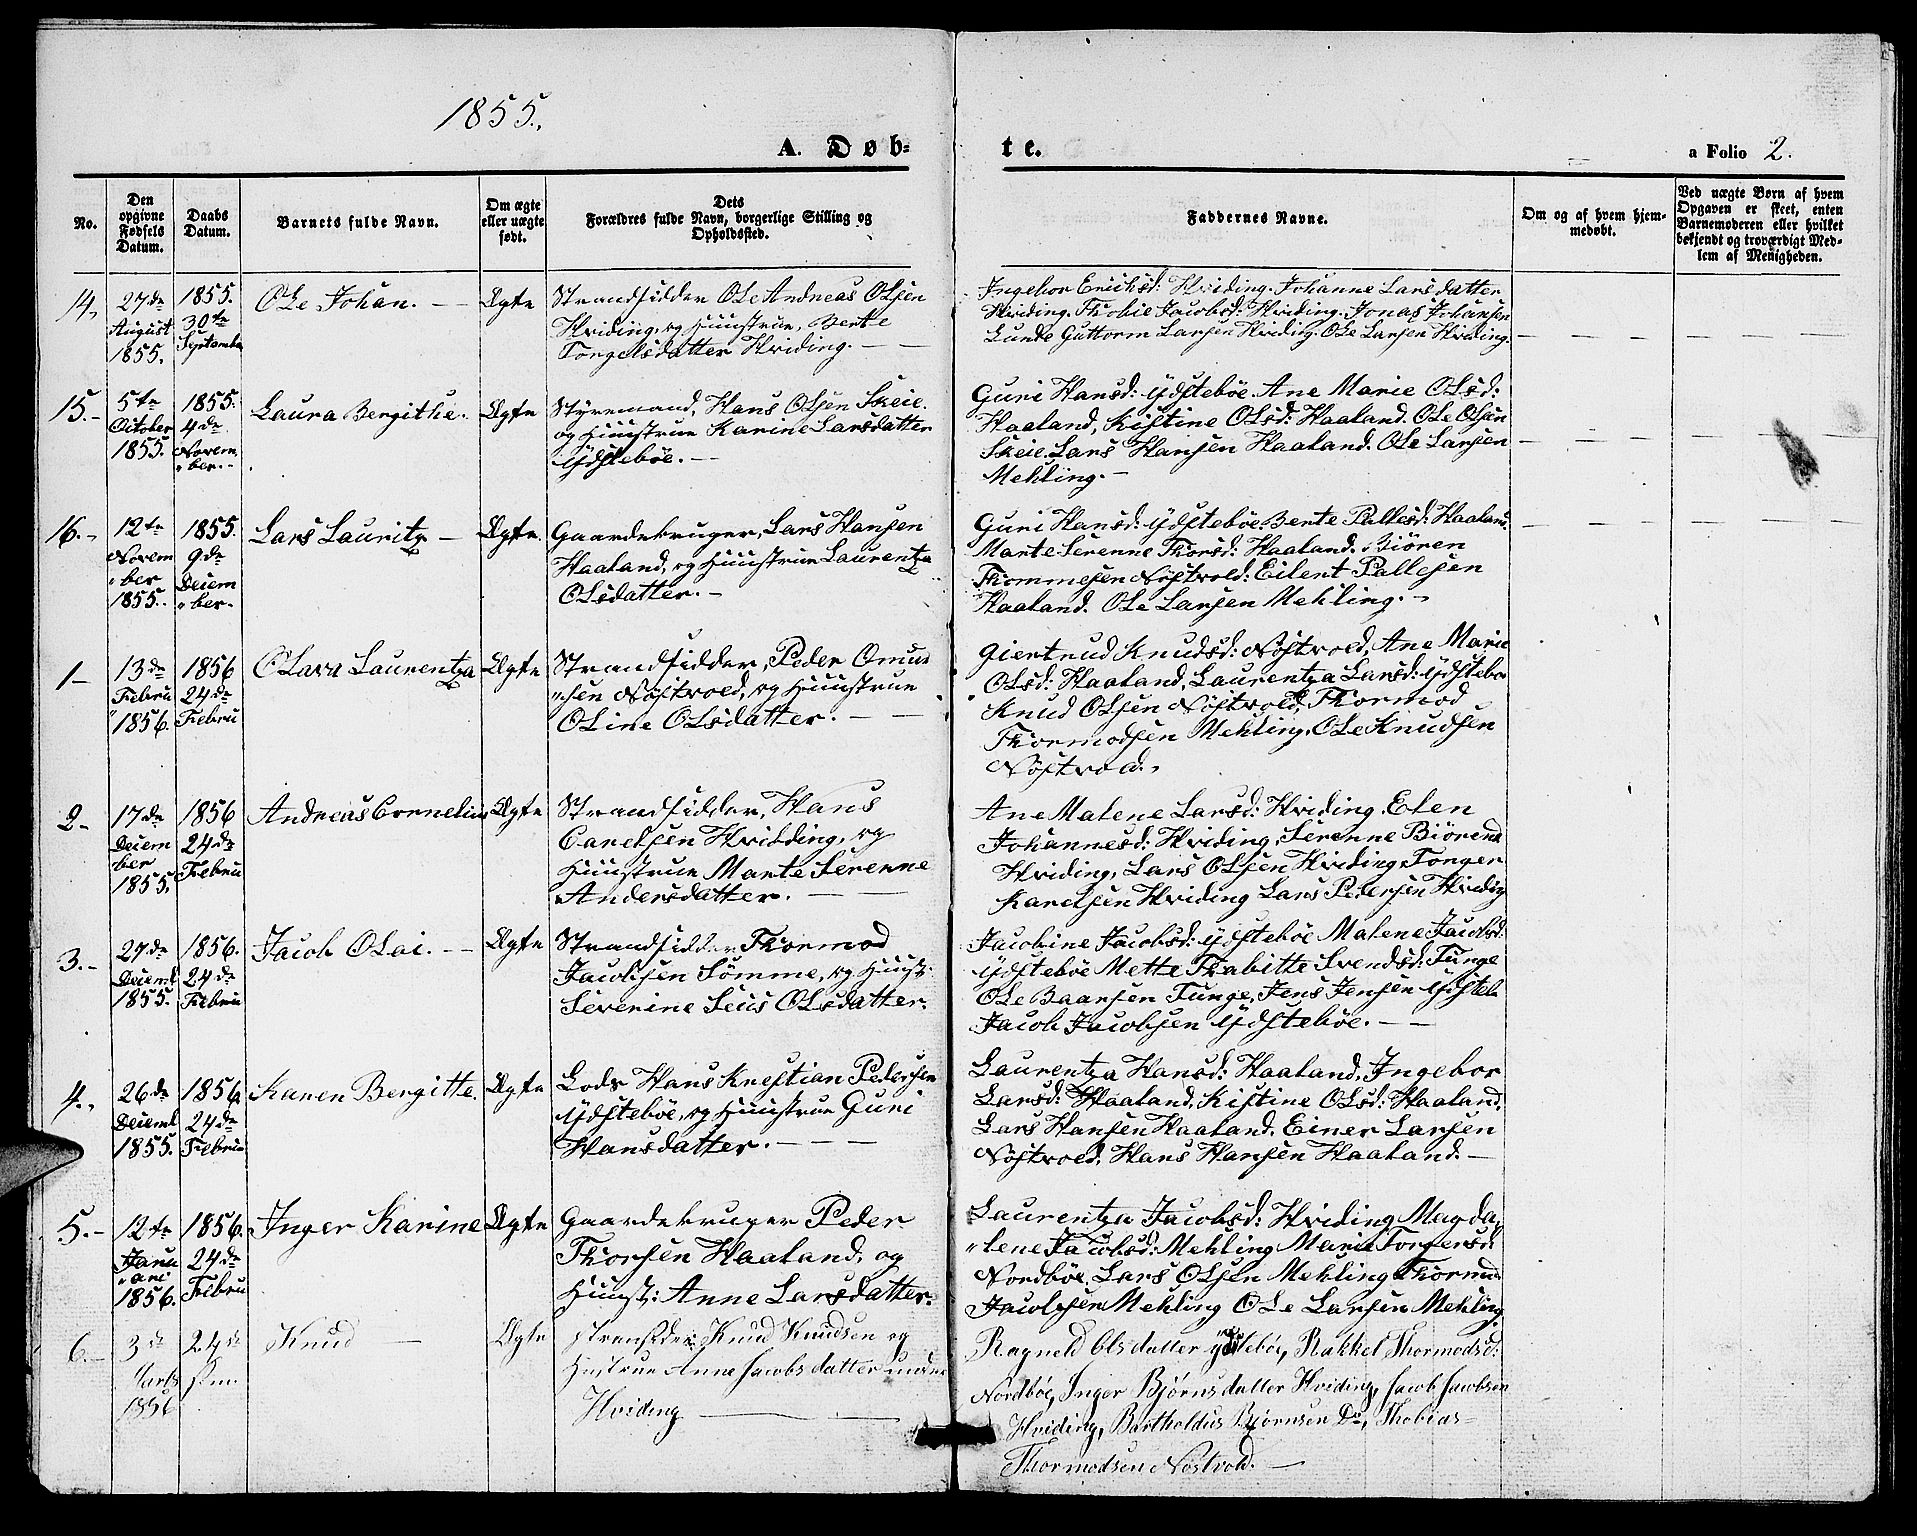 1855.
A. Døb-
te.
a Folio 2.
No.
Den opgivne Fødsels Datum.
Daabs Datum.
Barnets fulde Navn.
Om ægte eller uægte født.
Dets Forældres fulde Navn, borgerlige Stilling og Opholdssted.
Faddernes Navne.
Om og af hvem hjemmedøbt.
Ved uægte Børn af hvem Opgaven er skeet, enten Barnemoderen eller hvilket bekjendt og troværdigt Medlem af Menigheden.
14,
27de
August
1855.
1855.
30te
September
Ole Johan. —
Ægte
Strandsidder Ole Andreas Olsen
Hviding, og Huustrue, Berte
Torgelsdatter Hviding. — —
Ingebor Ericksd: Hviding. Johanne Larsdatter
Hviding. Thobie Jacobsd: Hviding. Jonas Johansen
Lunde Guttorm Larsen Hviding. Ole Larsen Hviding.
15.-
5te
October
1855.
1855.
4de
Novem
"ber.-
Laura Bergithe.
Ægte
Styremand, Hans Olsen Skeie.
og Huustrue Karine Larsdatter
Ydstebøe. —
Guri Hansd: Ydstebøe Ane Marie Olsd:
Haaland, Kistine Olsd: Haaland. Ole Olsen
Skeie. Lars Hansen Haaland. Ole Larsen
Mehling. —
16.-
12te
Novem
"ber
1855.
1855.
9de
Deiem
"ber.
Lars Lauritz —
Ægte.
Gaardebruger, Lars Hansen
Haaland, og Huustrue Laurentza
Olsdatter. —
Guri Hansd: Ydstebøe. Berte Pallesd: Haaland
Marte Serenne Thorsd: Haaland. Biören
Thommesen Nöstvold: Eilert Pallesen
Haaland. Ole Larsen Mehling. —
1-
13de
Febru
1856.
1856
24de
Febru
Olava Laurentza
Ægte
Strandsidder, Peder Omun
"sen Nöstvold, og Huustrue
Oline Olsdatter. — —
Giertrud Knudsd: Nöstvold, Ane Marie
Olsd: Haaland, Laurentza Larsd: Ydstebø
Knud Olsen Nöstvold, Thormod
Thormodsen Mehling, Ole Knudsen
Nöstvold.,
2-
17de
Deiem
ber
1855.
1856
24de
Febru
Andreas Cornelius
Ægte
Strandsidder, Hans
Carelsen Hvidding, og
Huustrue Marte Serenne
Andersdatter. — —
Ane Malene Larsd: Hviding. Elen
Johannesd: Hviding, Serenne Biörensd
Hviding, Lars Olsen Hviding, Torger
Karelsen Hviding Lars Pedersen Hviding
3.-
27de
Deiemb
1855.
1856.
24de
Febru
Jacob Olai. —
Ægte
Strandsidder Thormod
Jacobsen Sömme, og Huust:
Severine Seus Olsdatter.
Jacobine Jacobsd: Ydstebøe Malene Jacobsd:
Ydstebøe Mette Thabitte Svendsd: Tunge
Ole Baarsen Tunge, Jens Jensen Ydsteb
Jacob Jacobsen Ydstebøe. — —
4.,
26de
Deiemb
1855.
1856
24de
Febru
Karen Bergitte
Ægte
Lods Hans Krestian Pedersen
Ydstebøe, og Huustrue Guri
Hansdatter. — — —
Laurentza Hansd: Haaland, Ingebor
Larsd: Haaland, Kistine Olsd: Haaland,
Lars Hansen Haaland. Einer Larsen
Nöstvold, Hans Hansen Haaland. —
5.-
12te
Janu
"ari
1856.
1856.
24de
Febru
Inger Karine
Ægte
Gaardebruger Peder
Thorsen Haaland, og
Huust: Anne Larsdatter.
Laurentza Jacobsd: Hviding Magda,
"lene Jacobsd: Mehling Marie Torgersd:
Nordbøe. Lars Olsen Mehling Thormo
Jacobsen Mehling Ole Larsen Mehling
6.-
3de
Marts
1856
24de
sem.
Knud —
Ægte
Strandsider Knud Knudsen og
Hustrue Anne Jacobsdatter
Hviding — —
Ragneld Olsdatter Ydstebø, Rakkel Thormodsd:
Nordbø, Inger Bjørnsdatter Hviding, Jacob Jacobsen
Hviding, Bartholdus Bjørnsen Do, Thobias
Thormodsen Nöstvold. —